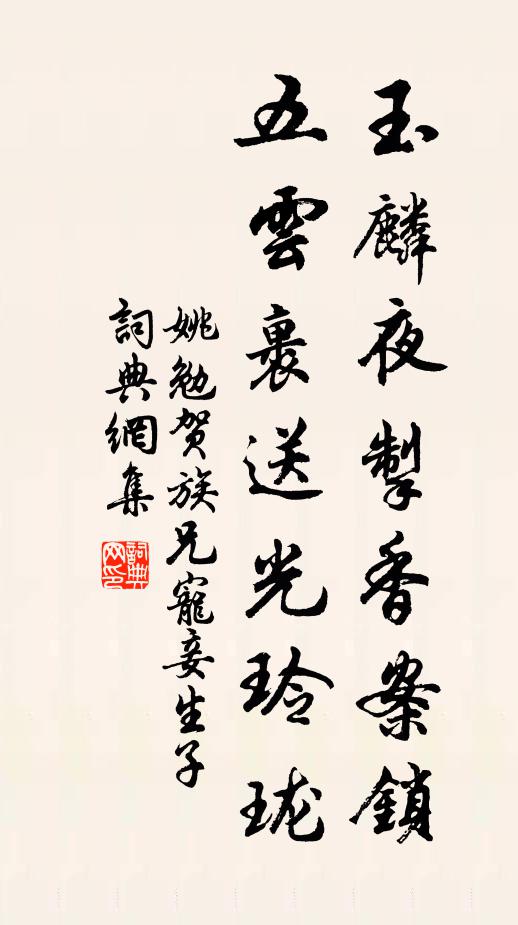 玉麟夜掣香案鎖
五雲裏送光玲瓏
姚勉贺族兄寵妾生子
詞典網集
詞典网印